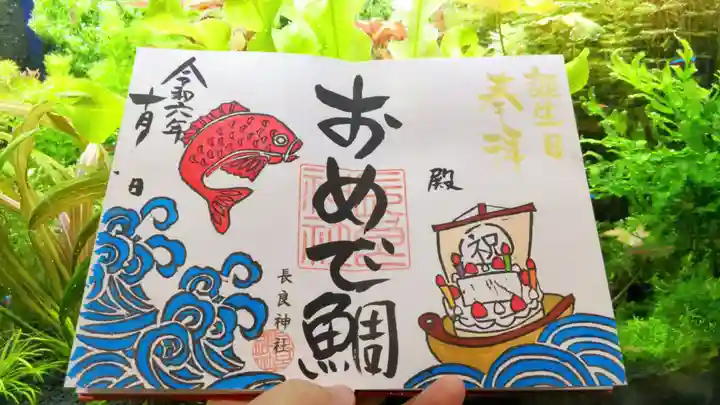 誕生日
奉拝
殿
祝
おめで鯛
長良神社
令和六年
十月
日